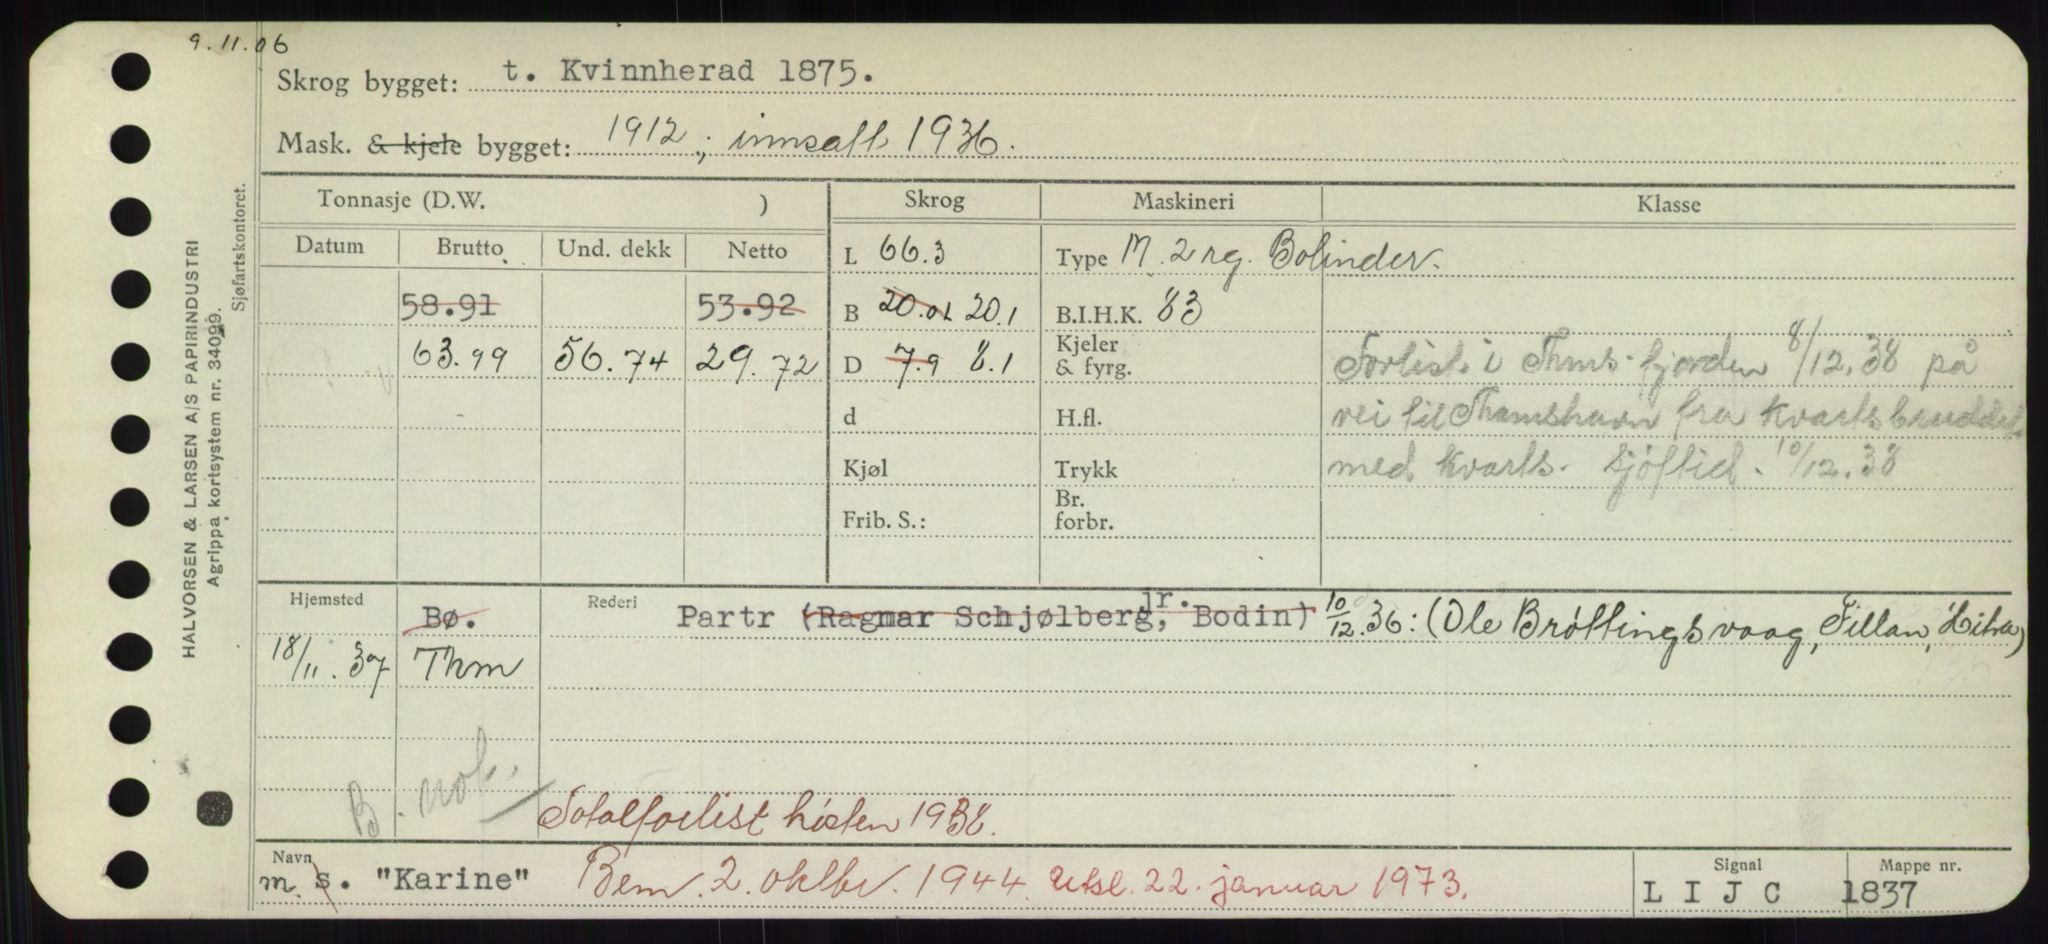 9.11.06
Skrog bygget: t. Kvinnherad 1875.
Mask. & kjele bygget: 1912, innsatt 1936.
Tonnasje (D.W. ) Skrog Maskineri Klasse
Datum Brutto Und. dekk Netto L 66.3 Type M. 2 rg. Bolinder.
58.91 53.92 B 20.01 20.1 B.I.H.K. 83
63.99 56.74 29.72 D 7.9 8.1 Kjeler & fyrg. Forlist i Thms.fjorden 8/12.38 på
d H.fl. vei til Thamshavn fra kvartsbruddet
Kjøl Trykk med kvarts. Sjøftid. 10/12.38
Frib. S.: Br. forbr.
Hjemsted Bø. Rederi Partr (Ragnar Schjølberg, jr. Bodin) 10/12.36: (Ole Brøttingsvaag, Fillan, Hitra)
18/11.37 Thm
B. not.
Totalforlist høsten 1938.
Navn m s. "Karine" Bem. 2. oktbr. 1944. Utsl. 22. januar 1973. Signal L I J C Mappe nr. 1837
HALVORSEN & LARSEN A/S PAPIRINDUSTRI
Agrippa kortsystem nr. 34099.
Sjøfartskontoret.